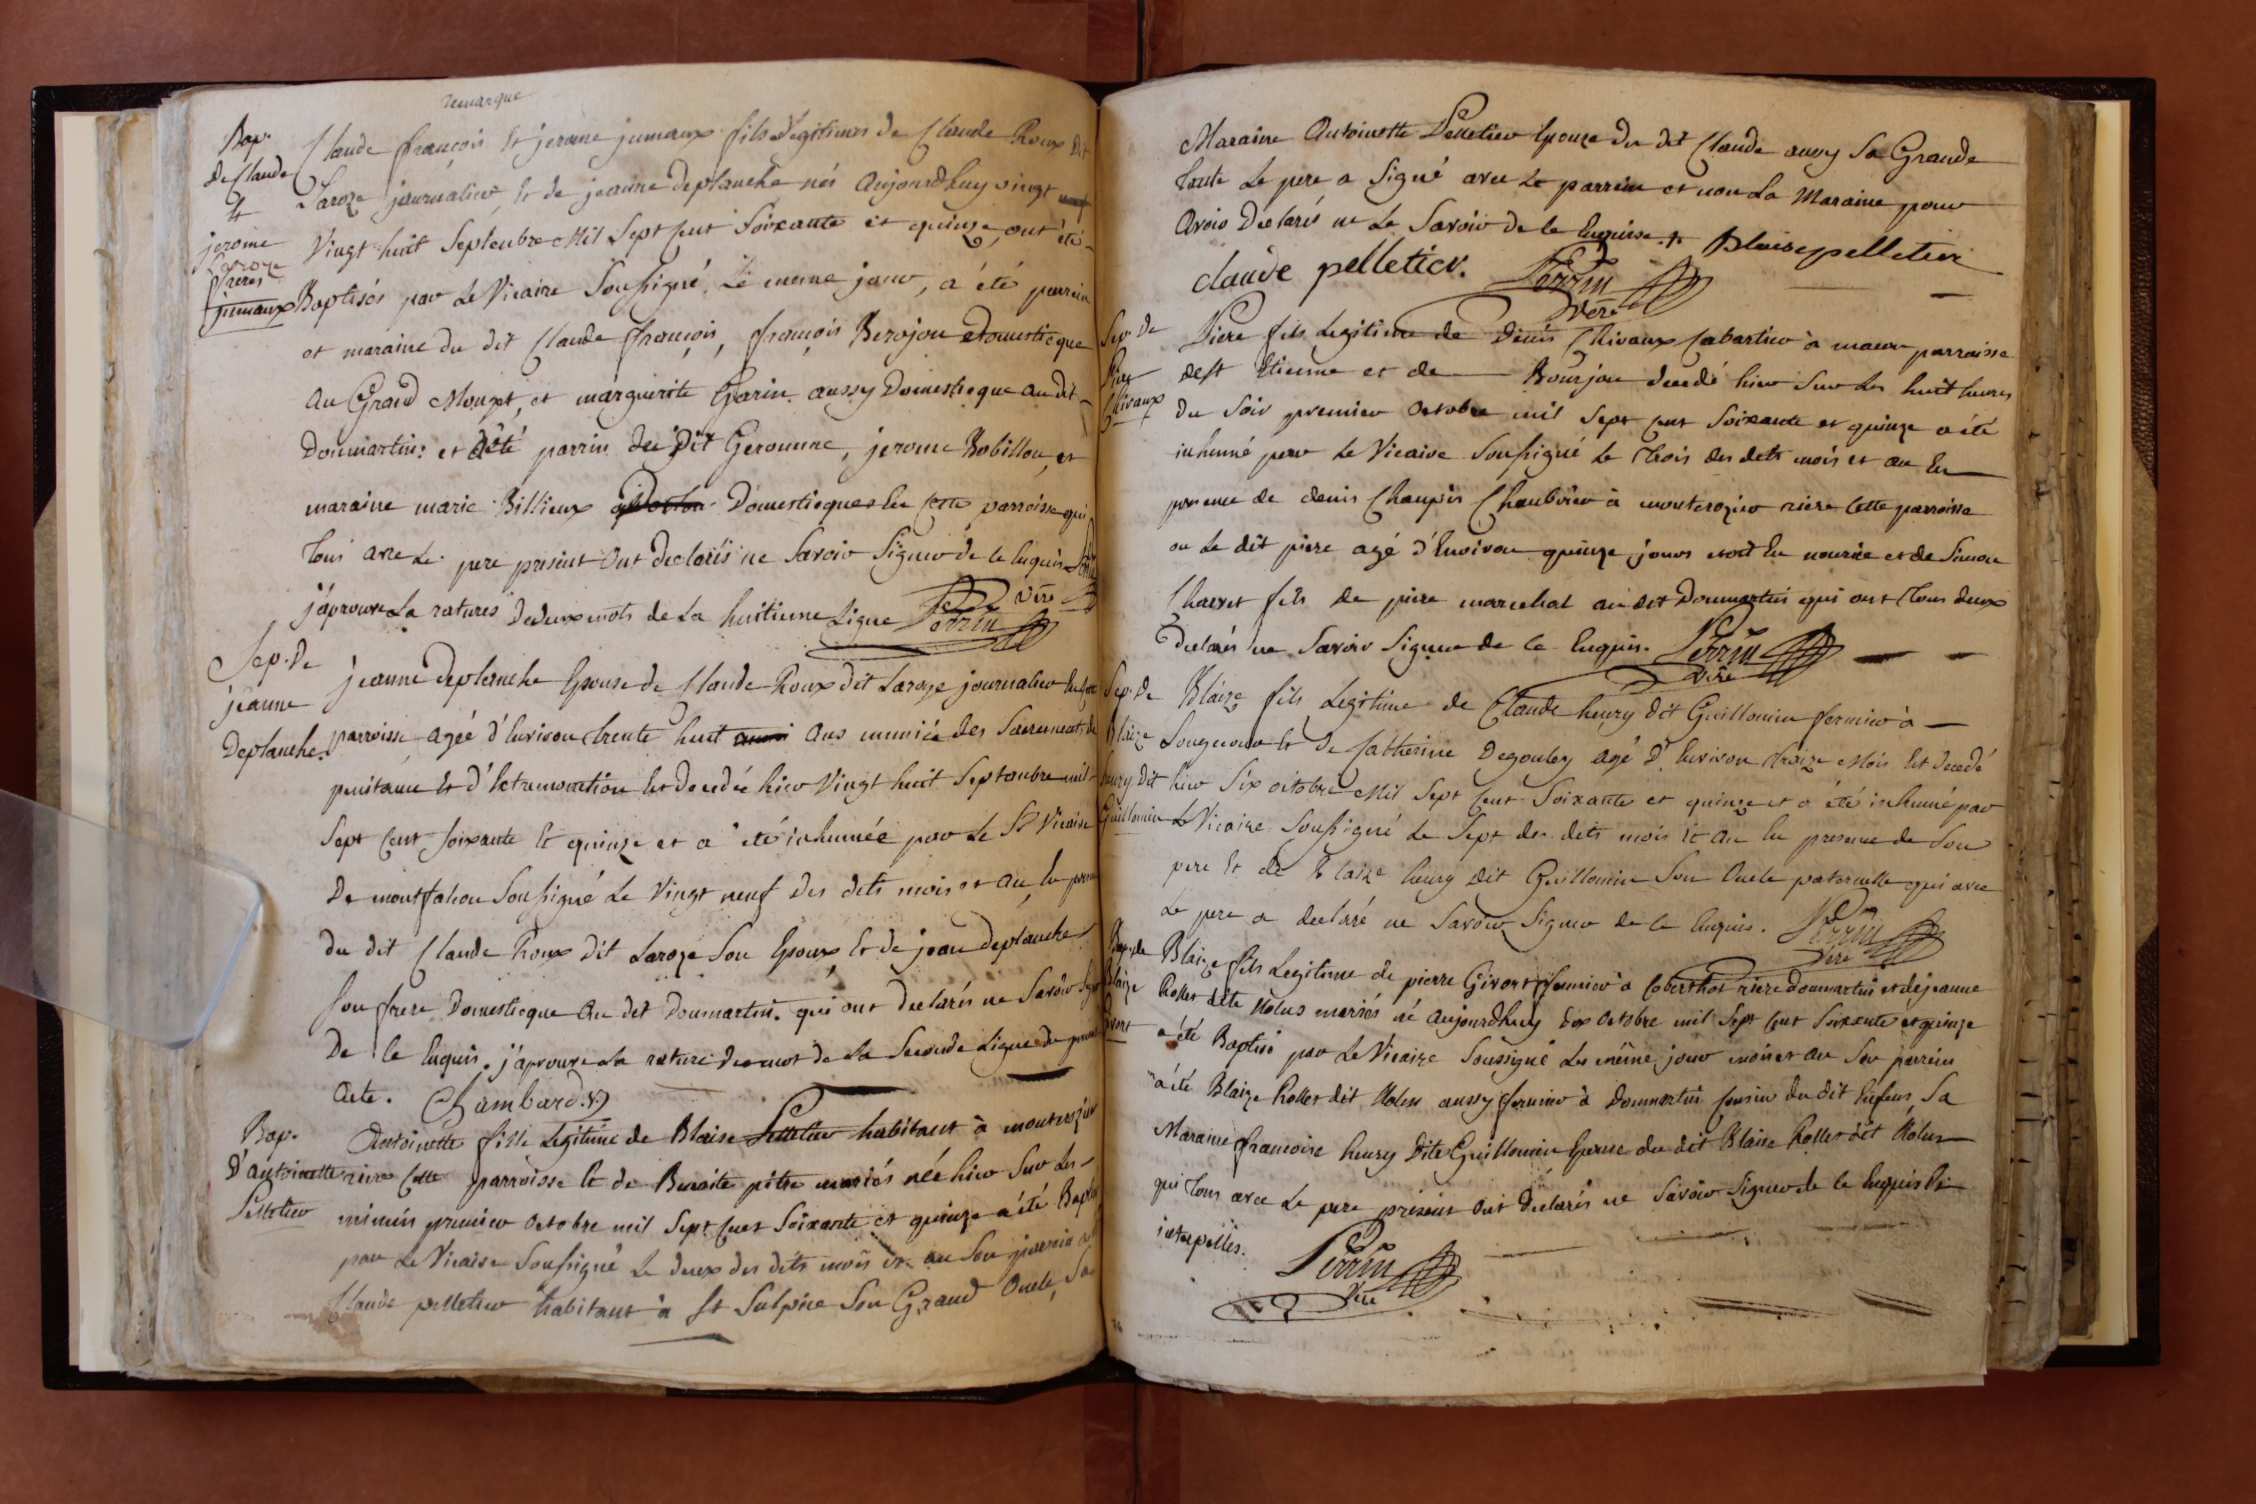 remarque
Bap.
de Claude
et
jerome
Laroze
freres
jumaux
Claude françois et jerome jumaux fils Légitimes de Claude Roux dit
Laroze journalier et de jeanne deplanche nés aujourdhuy vingt
Vingt huit Septembre Mil Sept Cent Soixante et quinze, ont été
Baptisés par Le Vicaire Soussigné, Le meme jour, a été parrein
et maraine du dit Claude françois, françois Berojon Domesticque
au Grand Mouxt, et marguerite Garin aussy Domesticque au dit
Dommartin; et a été parrin du dit Geromme, jerome Robillon, et
maraine marie Billieux Domesticques en Cette parroisse qui
Tous avec Le pere present ont declarés ne Savoir Signer de ce Enquis
j'aprouve La ratures de deux mots de La huitieme Ligne Perrin vire
Sep. de
jeanne
Deplanche
jeanne deplanche Epouse de Claude Roux dit Laroze journalier en cette
parroisse agée d'Environ trente huit ans munie des Sacrements de
penitance et d'Extremonction Est decedée hier Vingt huit Septembre mil
Sept Cent Soixante et quinze et a été inhumée par Le Sr Vicaire
De montfalcon Soussigné Le Vingt neuf des dits mois et an, En presence
du dit Claude Roux dit Laroze Son Epoux et de jean deplanche
Son frere Domesticque au dit Dommartin. qui ont declarés ne Savoir Signer
De ce Enquis. j'aprouve La rature du mot de La Seconde Ligne du present
acte. Chambard. v.
Bap.
D'antoinette
Pelletier
Antoinette fille Legitime de Blaise Pelletier habitant à montrozier
riere Cette parroisse et de Benoite pitre mariés née hier Sur Les
minuis premier octobre mil Sept Cent Soixante et quinze a été Baptisée
par Le Vicaire Soussigné Le deux des dits mois et an Son parrein
Claude pelletier habitant à St Sulpice Son Grand Oncle, Sa
Maraine Antoinette Pelletier Epouze du dit Claude aussy Sa Grande
Tante Le pere a Signé avec Le parrein et non La Maraine pour
Avoir Declarés ne Le Savoir de ce Enquise. Blaise pelletier
claude pelletier. Perrin vire
Sep. de
Piere
Chivaux
Piere fils Legitime de Denis Chivaux Cabartier à macon parroisse
de St Etienne et de Bourjon decedé hier Sur Les huit heures
du Soir premier octobre mil Sept Cent Soixante et quinze a été
inhumé par Le Vicaire Soussigné Le Trois des dits mois et an En
presence de denis Chanpin Chanbrier à montrozier riere Cette parroisse
ou Le dit piere agé d'Environ quinze jours etoit En nourice et de Simon
Charret fils de piere marechal au dit Dommartin qui ont Tous deux
declarés ne Savoir Signer de ce Enquis. Perrin vire
Sep. de
Blaize
henry dit
Guillomin
Blaize fils Legitime de Claude henry dit Guillomin fermier à
et de Catherine Degouley agé d'Environ Treize Mois Est decedé
hier Six octobre Mil Sept Cent Soixante et quinze et a été inhumé par
Le Vicaire Soussigné Le Sept des dits mois et an En presence de Son
pere et de Blaize henry dit Guillomin Son Oncle paternelle qui avec
Le pere a declaré ne Savoir Signer de ce Enquis. Perrin vire
Bap. de
Blaize
Givort
Blaize fils Legitime de pierre Givort fermier à Coberthod riere Dommartin et de jeanne
Rollet dite Molus mariés né aujourdhuy dix octobre mil Sept Cent Soixante et quinze
a été Baptisé par Le Vicaire Soussigné Les même jour mois et an Son parrein
a été Blaize Rollet dit Molus aussy fermier à Dommartin Cousin du dit Enfent, Sa
Maraine francoise henry Dite Guillomin Epouse du dit Blaise Rollet dit Molus
qui Tous avec Le pere present ont declarés ne Savoir Signer de ce Enquis Et
interpelles. Perrin
Vire